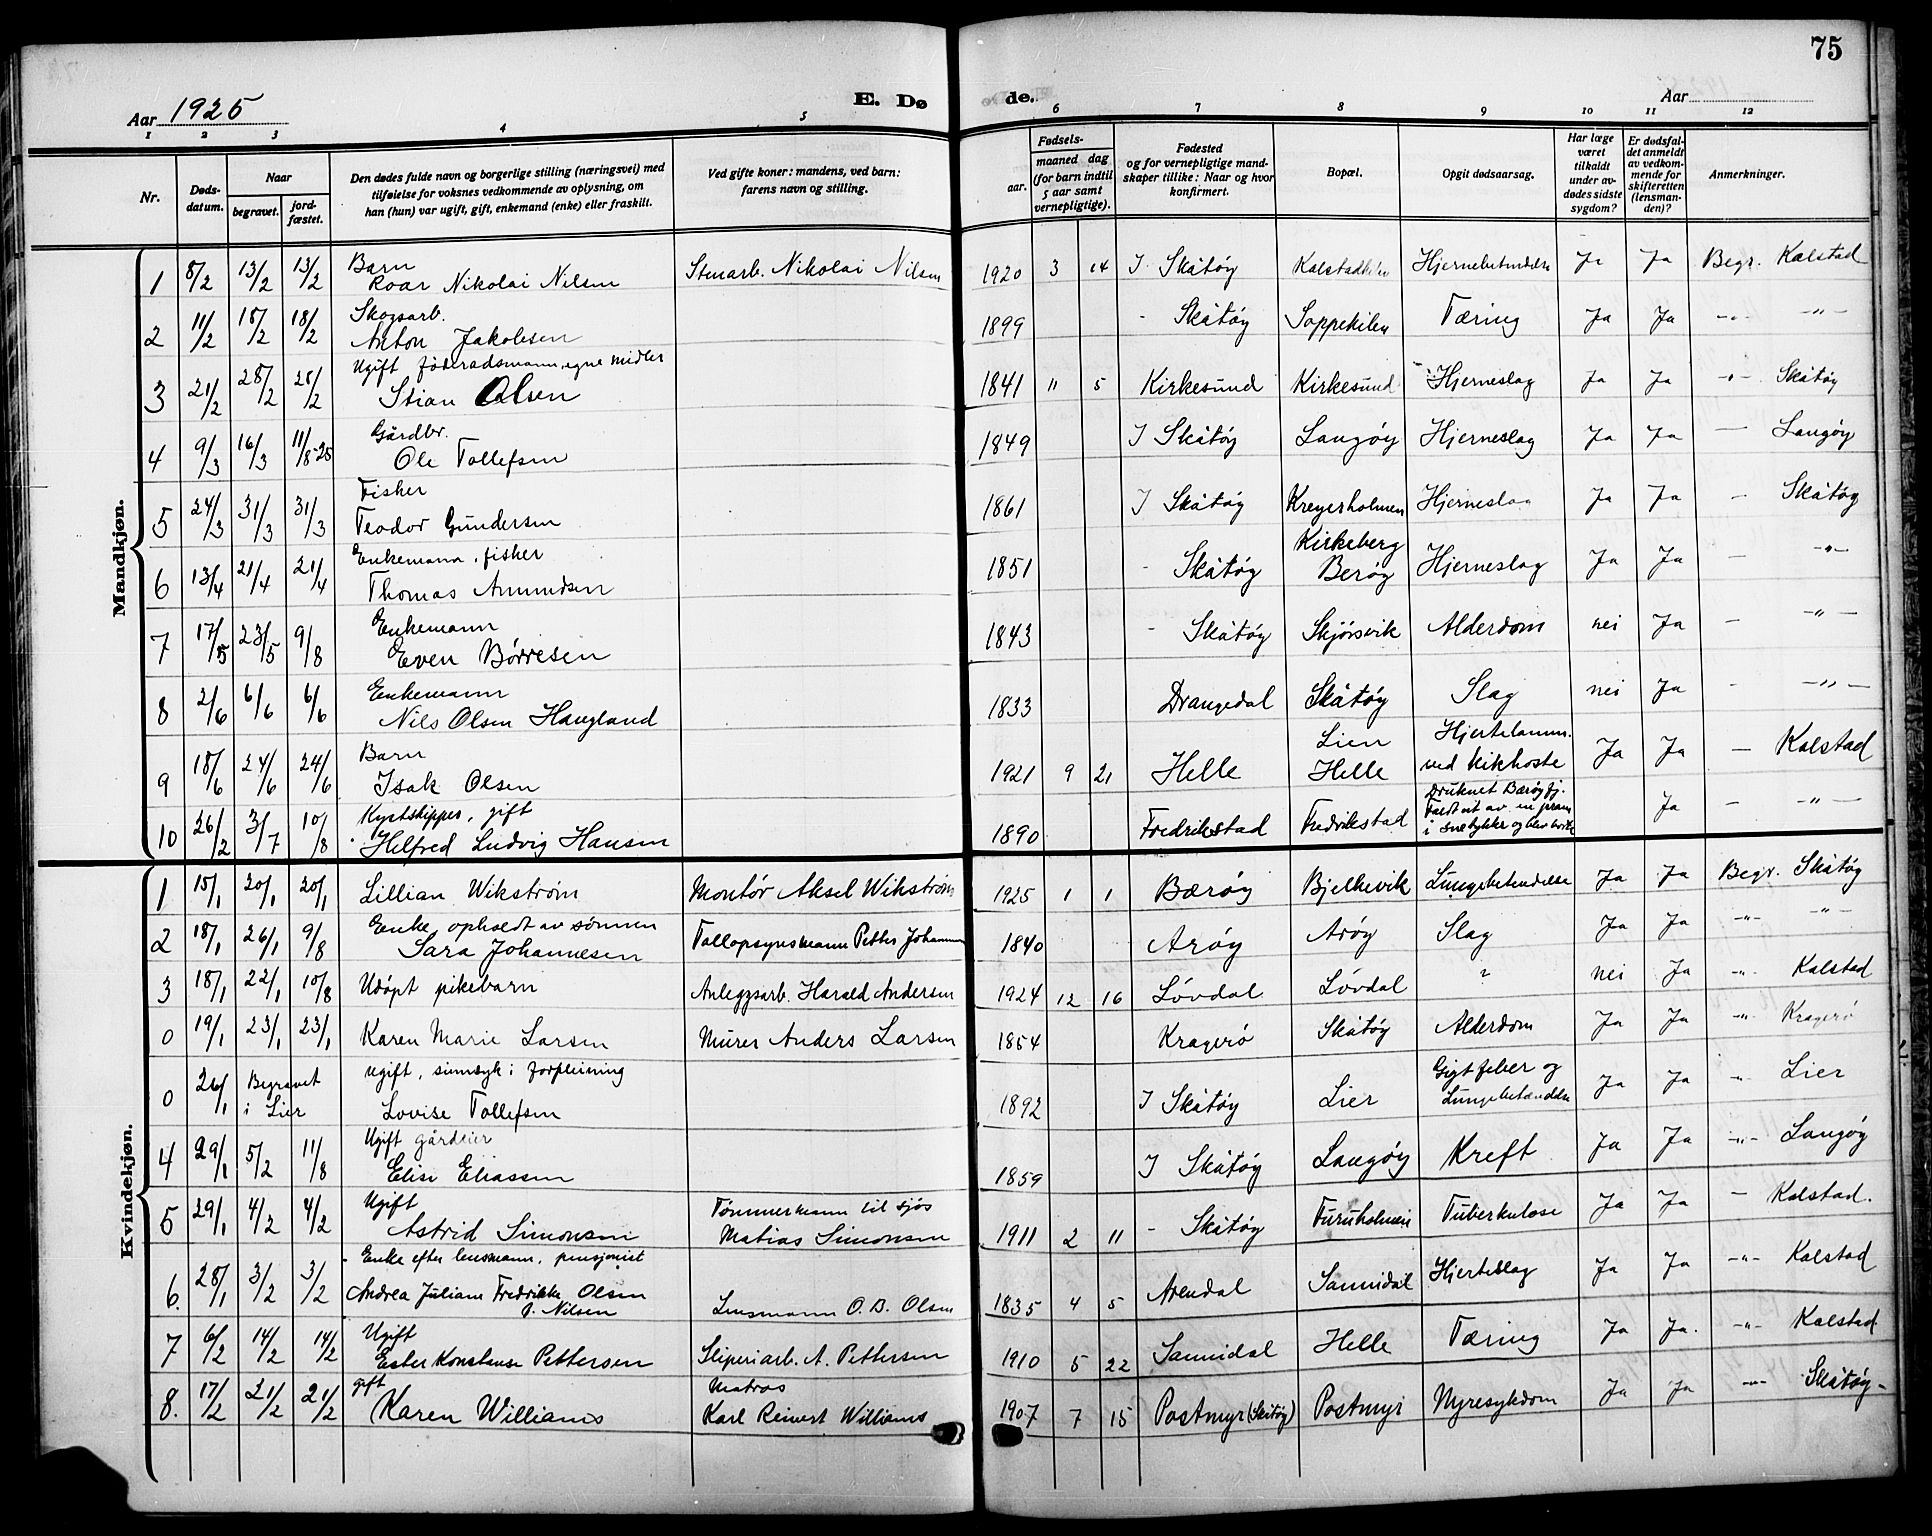 75
Aar 1925
E. Dø
de.
Aar
1 2 3 4 5 6 7 8 9 10 11 12
Nr.
Døds-
datum.
Naar
begravet.
jord-
fæstet.
Den dødes fulde navn og borgerlige stilling (næringsvei) med
tilføielse for voksnes vedkommende av oplysning, om
han (hun) var ugift, gift, enkemand (enke) eller fraskilt.
Ved gifte koner: mandens, ved barn:
farens navn og stilling.
Fødsels-
aar.
maaned dag
(for barn indtil
5 aar samt
vernepligtige).
Fødested
og for vernepligtige mand-
skaper tillike: Naar og hvor
konfirmert.
Bopæl.
Opgit dødsaarsag.
Har læge
været
tilkaldt
under av-
dødes sidste
sygdom?
Er dødsfal-
det anmeldt
av vedkom-
mende for
skifteretten
(lensman-
den)?
Anmerkninger.
Mandkjøn.
1 8/2 13/2 13/2 Barn
Roar Nikolai Nilsen Stenarb. Nikolai Nilsen 1920 3 14 I Skåtøy Kalstadkilen Hjernebetændelse Ja Ja Begr. Kalstad
2 11/2 18/2 18/2 Skogsarb.
Anton Jakobsen 1899 - Skåtøy Soppekilen Tæring Ja Ja -"- -"-
3 21/2 28/2 28/2 Ugift føderådsmann, egne midler
Stian Olsen 1841 11 5 Kirkesund Kirkesund Hjerneslag Ja Ja -"- Skåtøy
4 9/3 16/3 11/8-25 Gårdbr.
Ole Tollefsen 1849 I Skåtøy Langøy Hjerneslag Ja Ja — Langøy
5 24/3 31/3 31/3 Fisher
Teodor Gundersen 1861 I Skåtøy Kreyerholmen Hjerneslag Ja Ja - Skåtøy
6 13/4 21/4 21/4 Enkemann, fisher
Thomas Amundsen 1851 - Skåtøy Kirkeberg
Berøy Hjerneslag Ja Ja - -"-
7 17/5 23/5 9/8 Enkemann
Even Børresen 1843 - Skåtøy Skjørsvik Alderdom nei Ja - -"-
8 2/6 6/6 6/6 Enkemann
Nils Olsen Haugland 1833 Drangedal Skåtøy Slag nei Ja - -"-
9 18/6 24/6 24/6 Barn
Isak Olsen 1921 9 21 Helle Lien
Helle Hjertelamm.
ved kikhoste Ja Ja — Kalstad
10 26/2 3/7 10/8 Kystskipper, gift
Helfred Ludvig Hansen 1890 Fredrikstad Fredrikstad Druknet Bærøyfj.
Faldt ut av en pram
i snetykke og blev Ja - -"-
Kvindekjøn.
1 15/1 20/1 20/1 Lillian Wikstrøm Montør Aksel Wikstrøm 1925 1 1 Bærøy Bjelkevik Lungebetændelse Ja Ja Begr. Skåtøy
2 18/1 26/1 9/8 Enke, opholdt av sønnen
Sara Johannesen Tollopsynsmann Petter Johannesen 1840 Arøy Arøy Slag Ja Ja -"- -"-
3 18/1 22/1 10/8 Udøpt pikebarn Anleggsarb. Harald Andersen 1924 12 16 Løvdal Løvdal ? nei Ja -"- Kalstad
0 19/1 23/1 23/1 Karen Marie Larsen Murer Anders Larsen 1854 Kragerø Skåtøy Alderdom Ja Ja -"- Kragerø
0 26/1 Begravet
i Lier ugift, sinnsyk i forpleining
Lovise Tollefsen 1892 I Skåtøy Lier Gigtfeber og
Lungebetændelse Ja Ja -"- Lier
4 29/1 5/2 11/8 Ugift gårdeier
Elise Eliassen 1859 I Skåtøy Langøy Kreft Ja Ja -"- Langøy
5 29/1 4/2 4/2 Ugift
Astrid Simonsen Tømmermann til sjøs
Matias Simonsen 1911 2 11 - Skåtøy Furuholmen Tuberkulose Ja Ja - Kalstad.
6. 28/1 3/2 3/2 Enke efter lensmann, pensjonist
Andrea Juliane Fredrikke Olsen
f. Nilsen Lensmann O. B. Olsen 1835 4 5 Arendal Sannidal Hjerteslag Ja Ja -"- Kalstad
7 6/2 14/2 14/2 Ugift
Ester Konstanse Pettersen Sliperiarb. A. Pettersen 1910 5 22 Sannidal Helle Tæring Ja Ja. -"- Kalstad
8. 17/2 21/2 21/2 gift
Karen Williams Matros
Karl Reinert Williams 1907 7 15 Postmyr (Skåtøy) Postmyr Nyresykdom Ja Ja -"- Skåtøy-